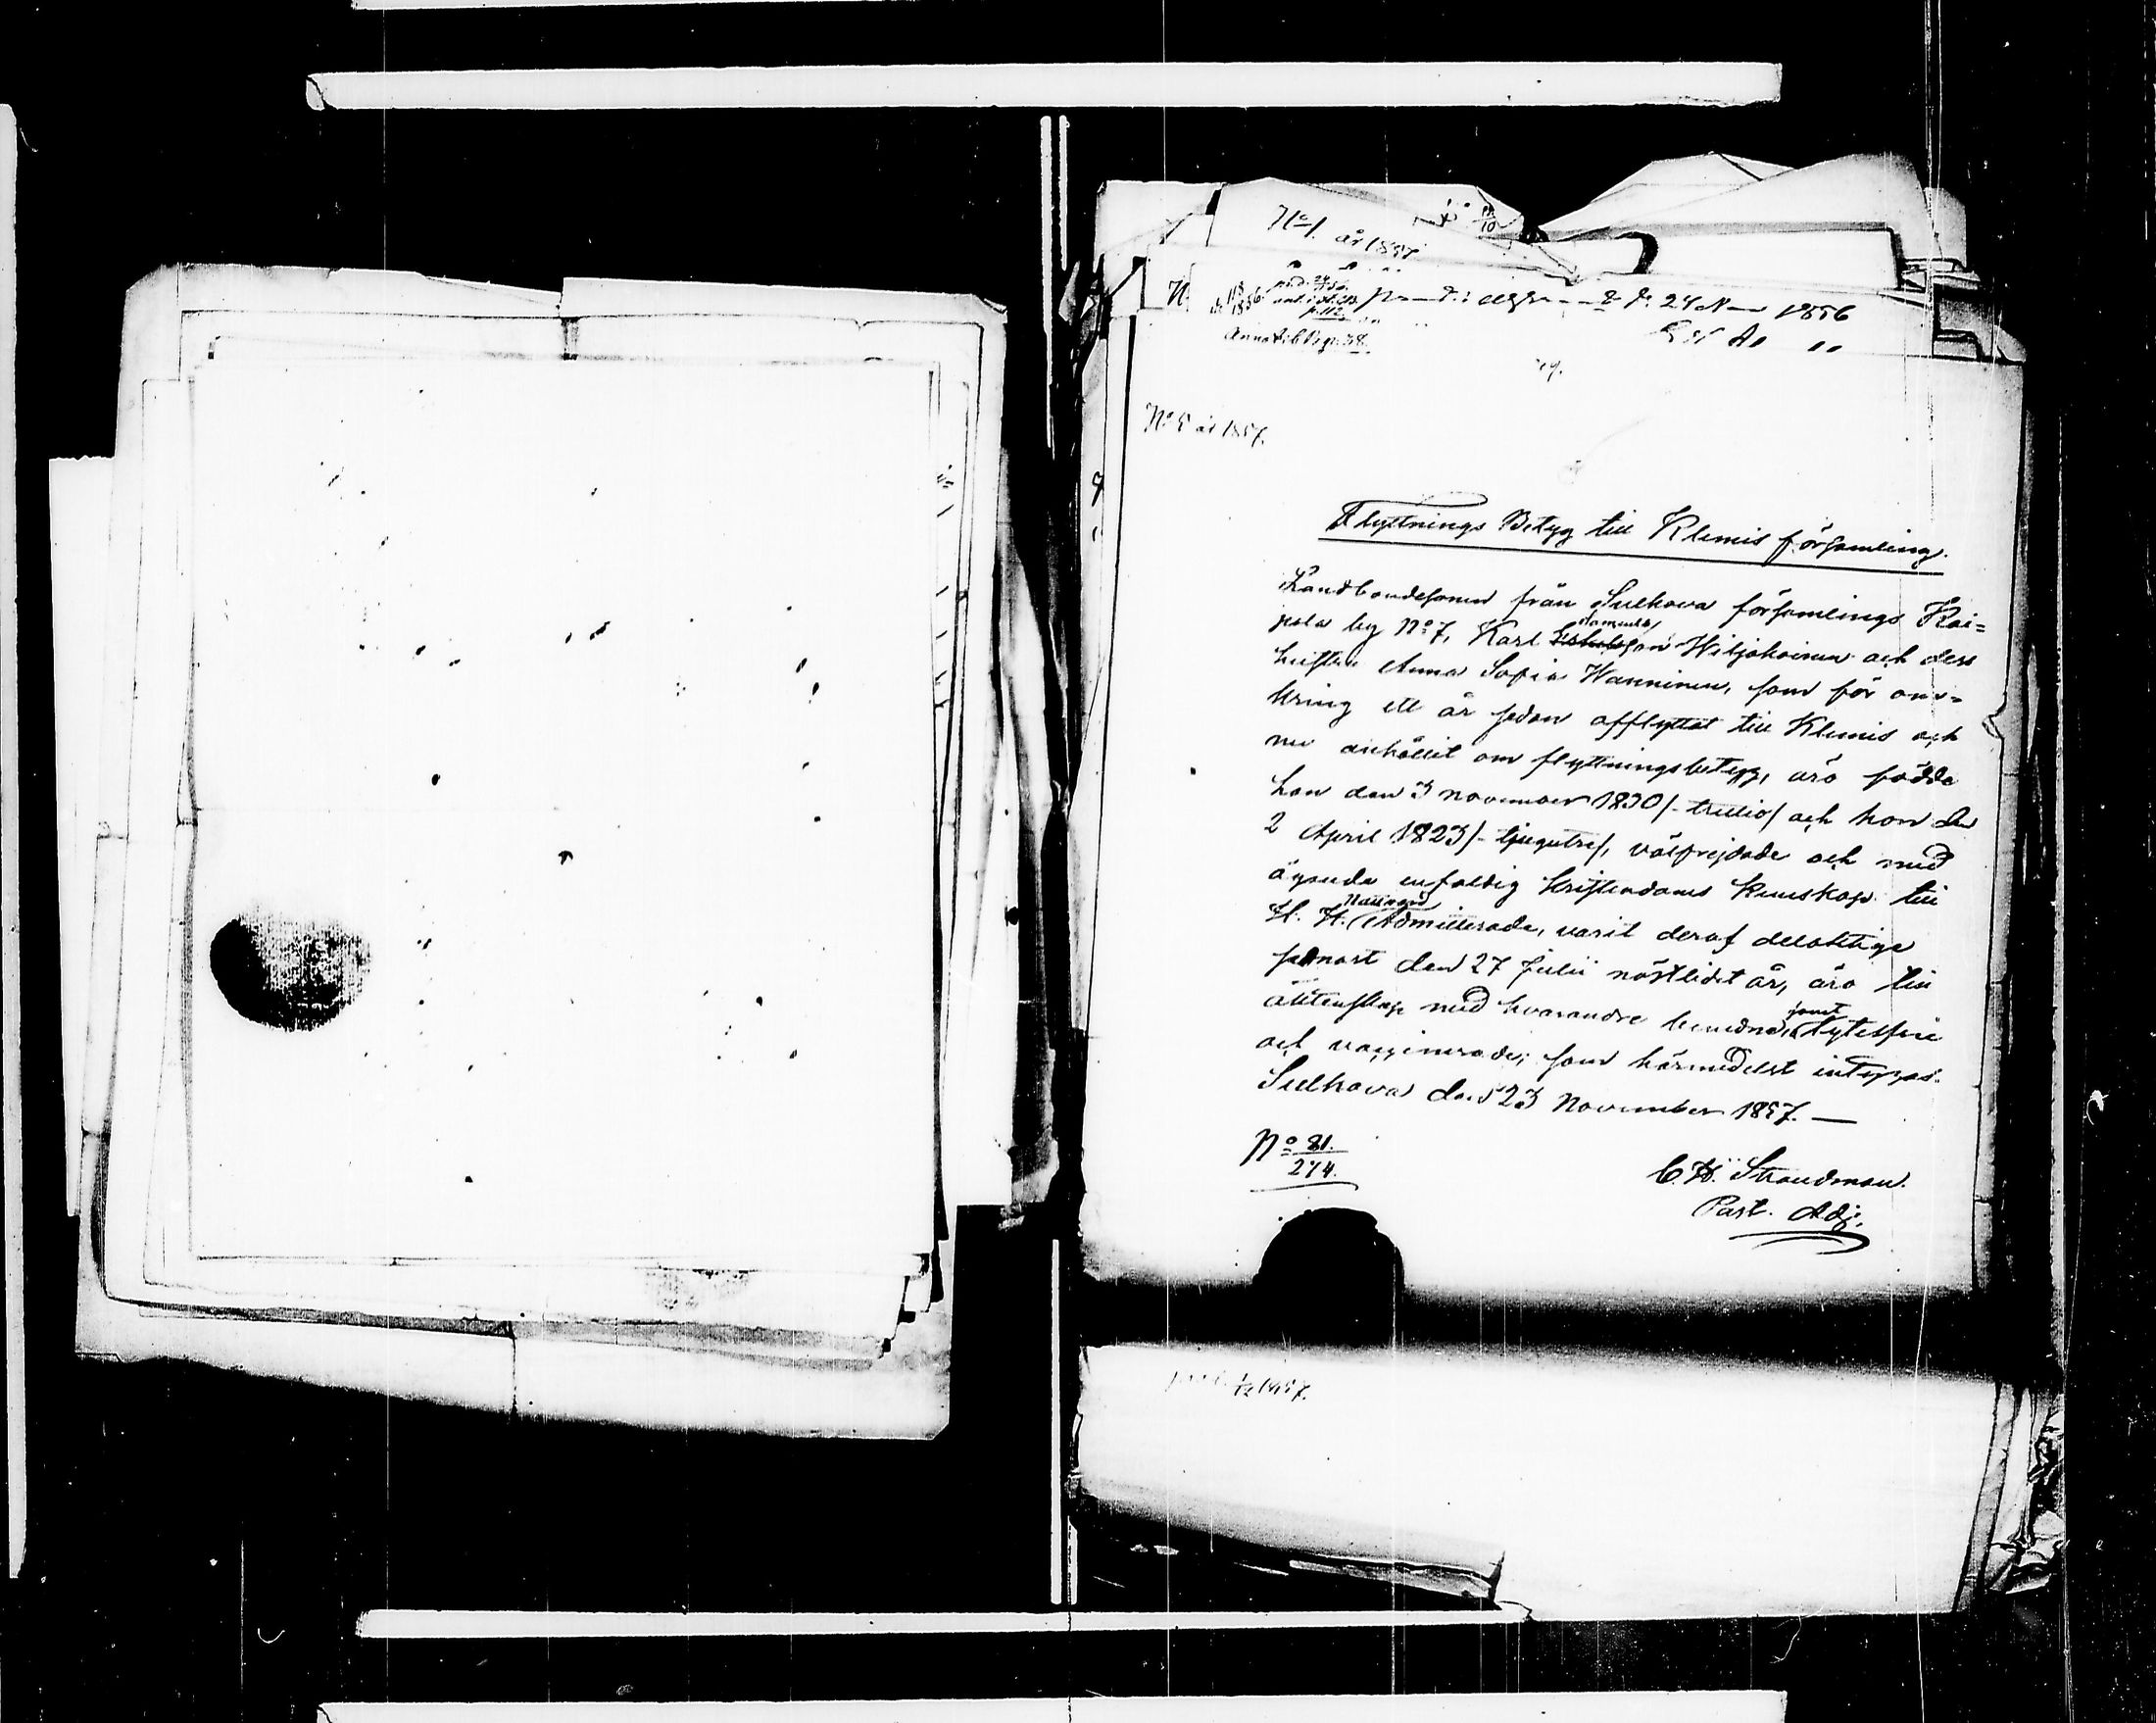 No 1. år 1857
24 N 1856
No 5 år 1857.
Flyttnings Betyg till Klemis församling.
Landbondesonen från Sulkava församlings Kai=
pola by No 7, Karl Samuelsson Hiljakoinen och dess
hustru Anna Sofia Wanninen, som för om=
kring ett år sedan afflyttat till Klemis och
nu anhållit om flyttningsbetyg, äro födde
han den 3 november 1830/-trettio/ och hon den
2 April 1823/-tjugutre/, välfrejdade och med
ägande enfaldig kristendoms kunskap till
H. H. Nattvard Admitterade, varit deraf delaktige
sednast den 27 Julii nästlidet år, äro till
äktenskap med hvarandre, samt lytesfrie
och vaccinerade; som härmedelst intygas.
Sulkava den 23 November 1857. —
No 81.
274.
C. H. Strandman.
Past. Adj.
1/12 1857.